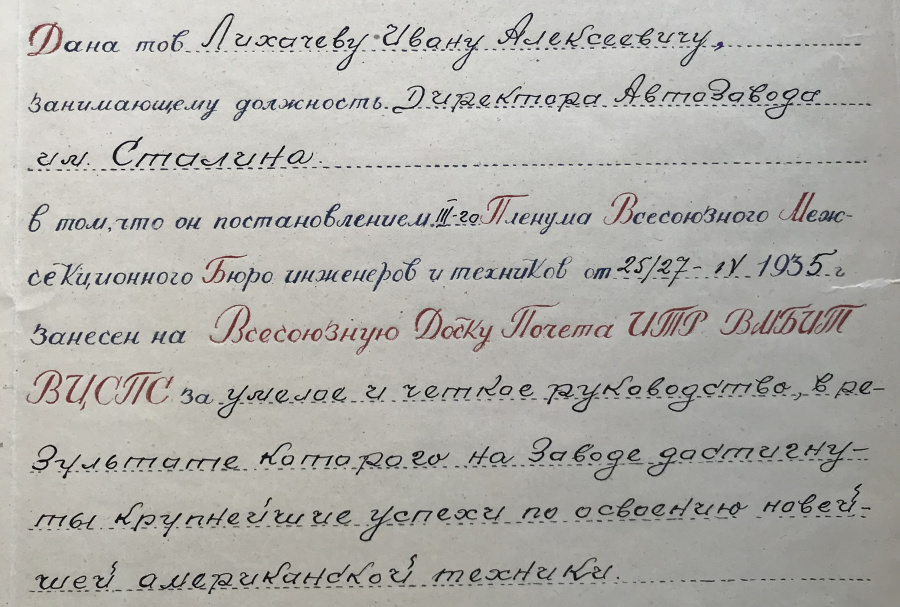 Дана тов Лихачеву Ивану Алексеевичу,
занимающему должность Директора АвтоЗавода
им. Сталина.
в том, что он постановлением III-го Пленума Всесоюзного Меж-
секционного Бюро инженеров и техников от 25/27-IV 1935 г
занесен на Всесоюзную Доску Почета ИТР ВМБИТ
ВЦСПС за умелое и четкое руководство, в ре-
зультате которого на Заводе достигну-
ты крупнейшие успехи по освоению новей-
шей американской техники.